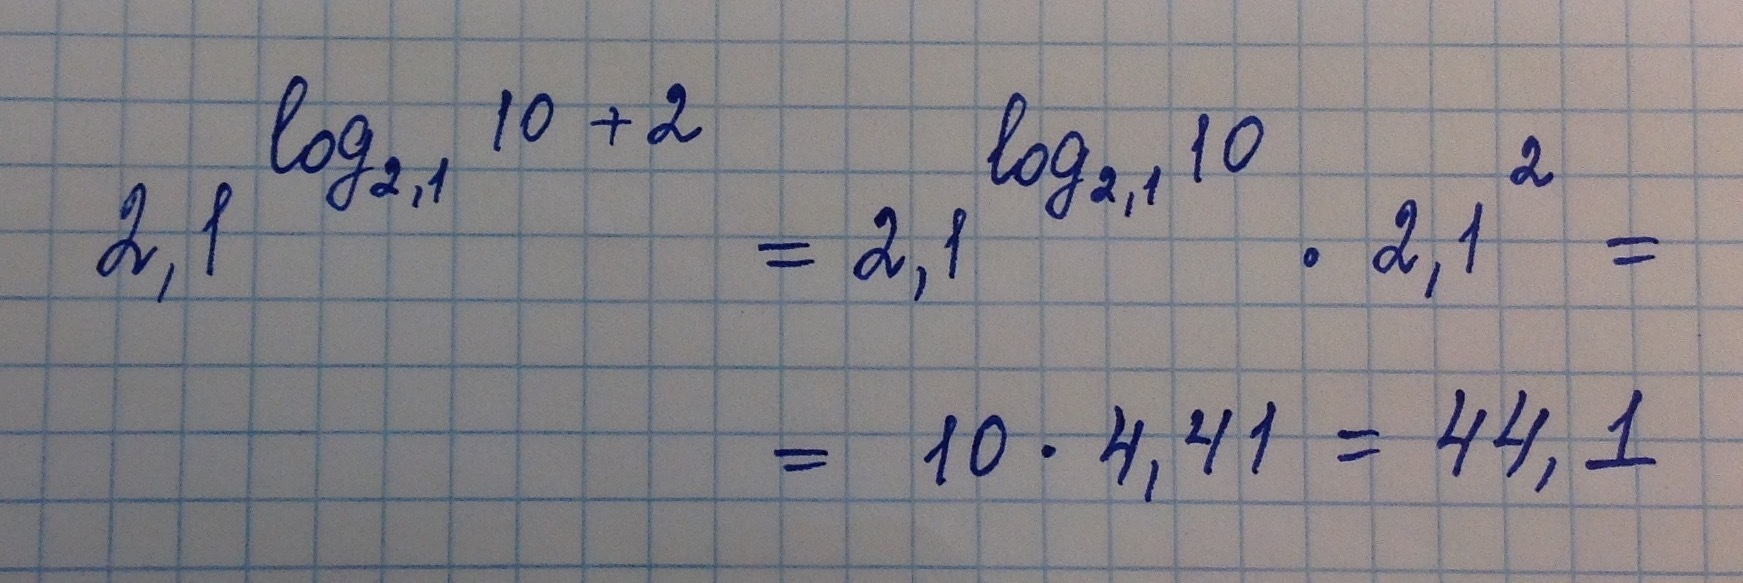 2,1^{log_{2,1} 10 + 2} = 2,1^{log_{2,1} 10} · 2,1^2 =
= 10 · 4,41 = 44,1